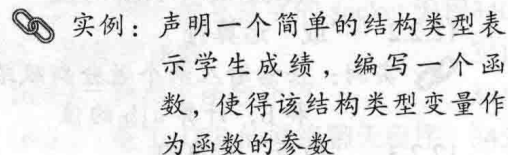 实例：声明一个简单的结构类型表
示学生成绩，编写一个函
数，使得该结构类型变量作
为函数的参数